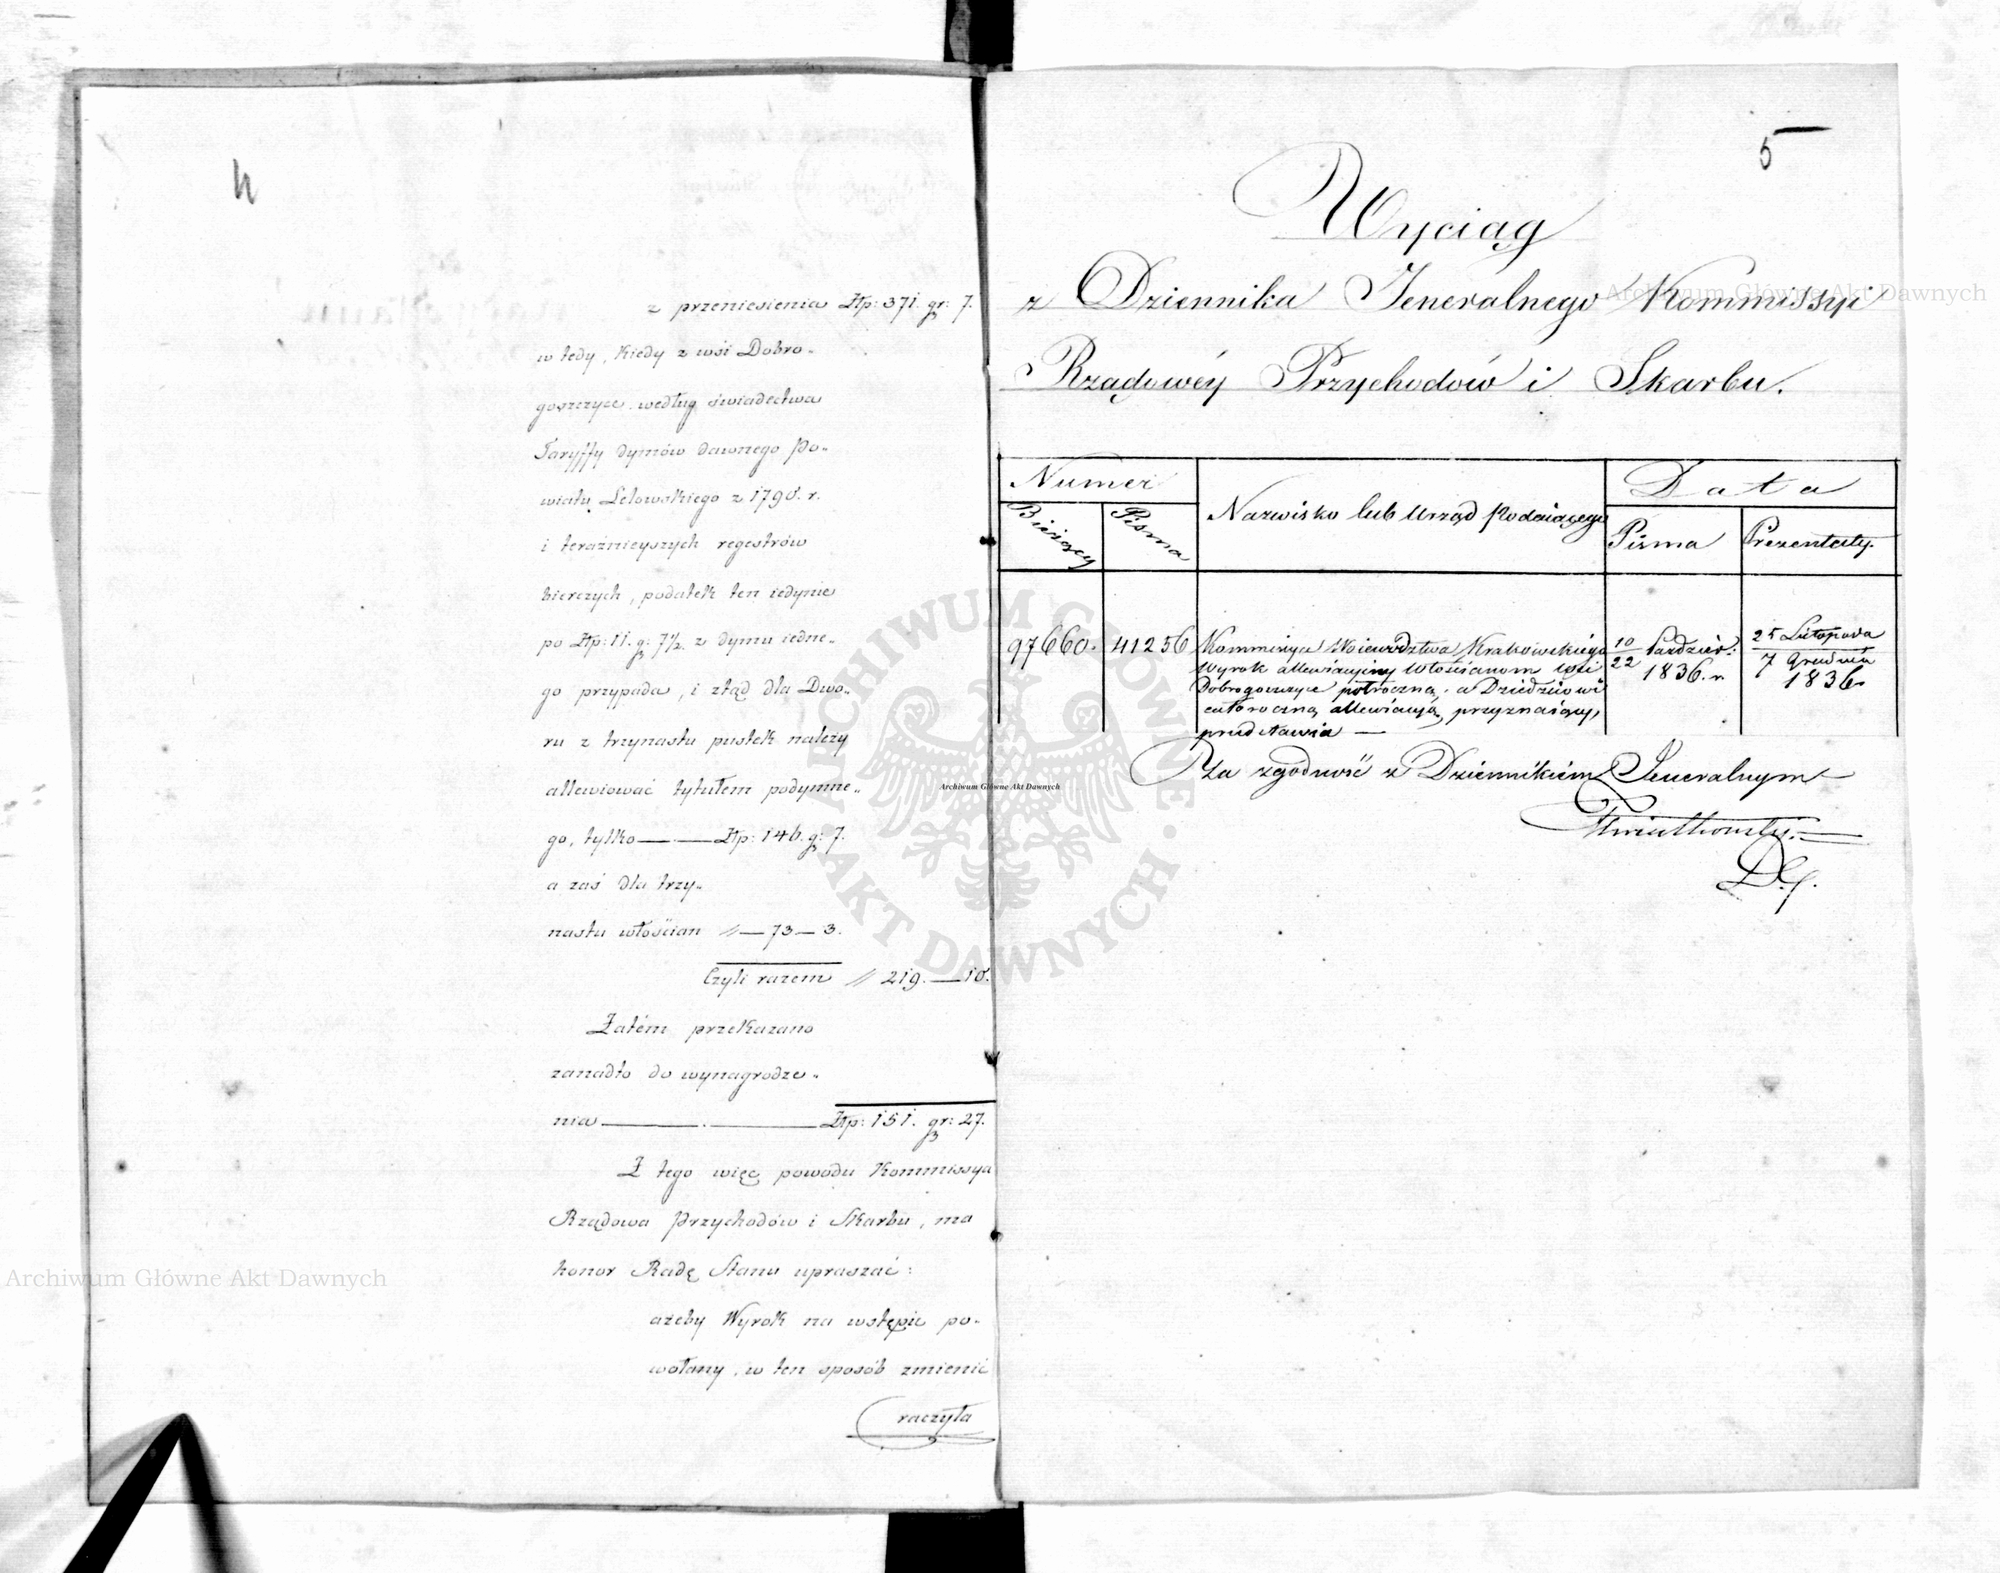 4
z przeniesienia Złp: 371. gr: 7.
w tedy, kiedy z wsi Dobro„
goszczyce według świadectwa
Taryffy dymów dawnego Po„
wiatu Lelowskiego z 1790. r.
i teraźnieyszych regestrów
bierczych, podatek ten iedynie
po Złp: 11. g: 7½. z dymu iedne„
go przypada, i ztąd dla Dwo„
ru z trzynastu pustek należy
allewiować tytułem podymne„
go, tylko — Złp: 146. g: 7.
a zaś dla trzy„
nastu włościan „ — 73 — 3.
Czyli razem „ 219. — 10.
Zatém przekazano
zanadto do wynagrodze„
nia — . — Złp: 151. gr: 27.
Z tego więc powodu Kommissya
Rządowa Przychodów i Skarbu, ma
honor Radę Stanu upraszać:
ażeby Wyrok na wstępie po„
wołany, w ten sposób zmienić
raczyła
5
Wyciąg
z Dziennika Jeneralnego Kommissyi
Rządowéy Przychodów i Skarbu.
Numer
Bieżący
Pisma
Nazwisko lub Urząd Podaiącego
Data
Pisma
Prezentaty.
97660.
41256
Kommissya Woiewództwa Krakowskiego
Wyrok allewiacyjny Włościanom wsi
Dobrogoszczyce półroczną, a Dziedzicowi
całoroczną allewiacyą przyznaiący,
przedstawia —
10/22 Paździer:
1836. r.
25 Listopada
7 Grudnia
1836
Za zgodność z Dziennikiem Jeneralnym
Kwiatkowski.
D.J.
Archiwum Główne Akt Dawnych
Archiwum Główne Akt Dawnych
Archiwum Główne Akt Dawnych
ARCHIWUM GŁÓWNE · AKT DAWNYCH ·